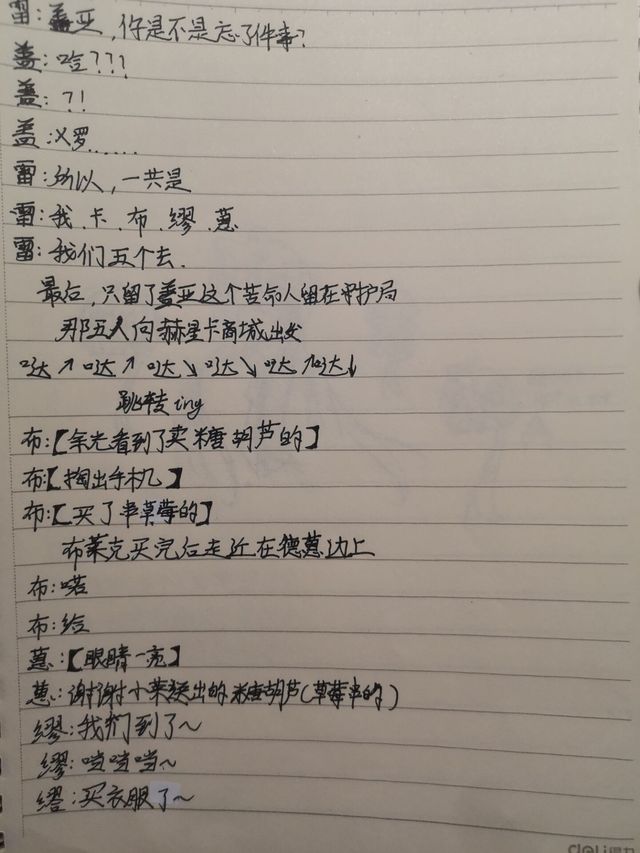 雷:盖亚,你是不是忘了件事?
盖:啥???
盖:?!
盖:义罗......
雷:所以,一共是
雷:我.卡.布.缪.蒽
雷:我们五个去.
最后,只留了盖亚这个苦命人留在守护局
那五人向赫星卡商城出发
哒↗哒↗哒↘哒↘哒↗哒↓
跳转ing
布:【余光看到了卖糖胡芦的】
布:【掏出手机】
布:【买了串草莓的】
布莱克买完后走近在德蒽边上
布:喏
布:给
蒽:【眼睛一亮】
蒽:谢谢小莱送出的糖胡芦(草莓串的)
缪:我们到了~
缪:噹噹噹~
缪:买衣服了~
deli得力